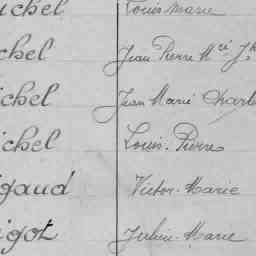 ichel Louis Marie
chel Jean Pierre Mie Jh
ichel Jean Marie Charl
ichel Louis-Pierre
igaud Victor-Marie
igot Marie